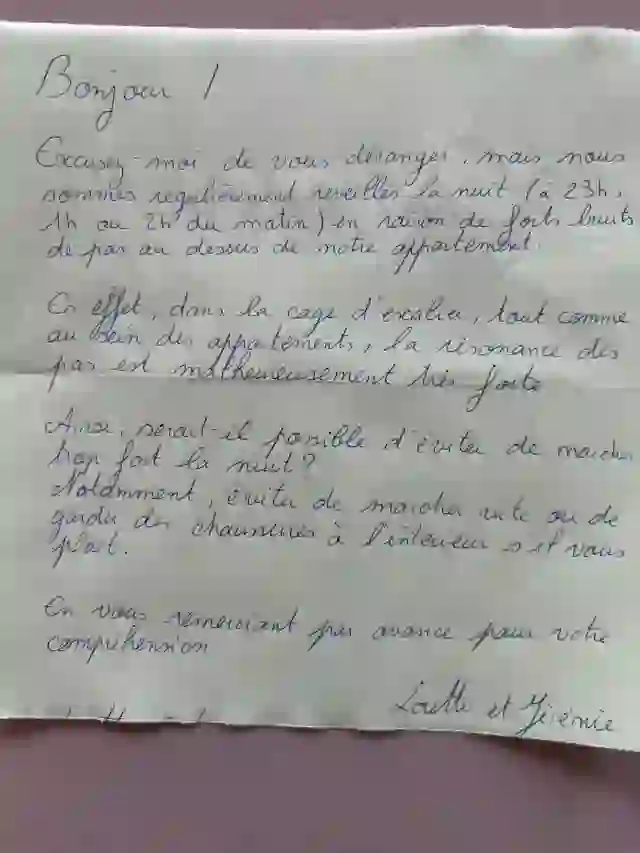 Bonjour !
Excusez-moi de vous déranger, mais nous
sommes régulièrement réveillés la nuit (à 23h,
1h ou 2h du matin) en raison de forts bruits
de pas au dessus de notre appartement.
En effet, dans la cage d'escalier, tout comme
au sein des appartements, la résonance des
pas est malheureusement très forte
Ainsi, serait-il possible d'éviter de marcher
trop fort la nuit ?
Notamment, éviter de marcher vite ou de
garder des chaussures à l'intérieur s'il vous
plait.
En vous remerciant par avance pour votre
compréhension
et Jérémie